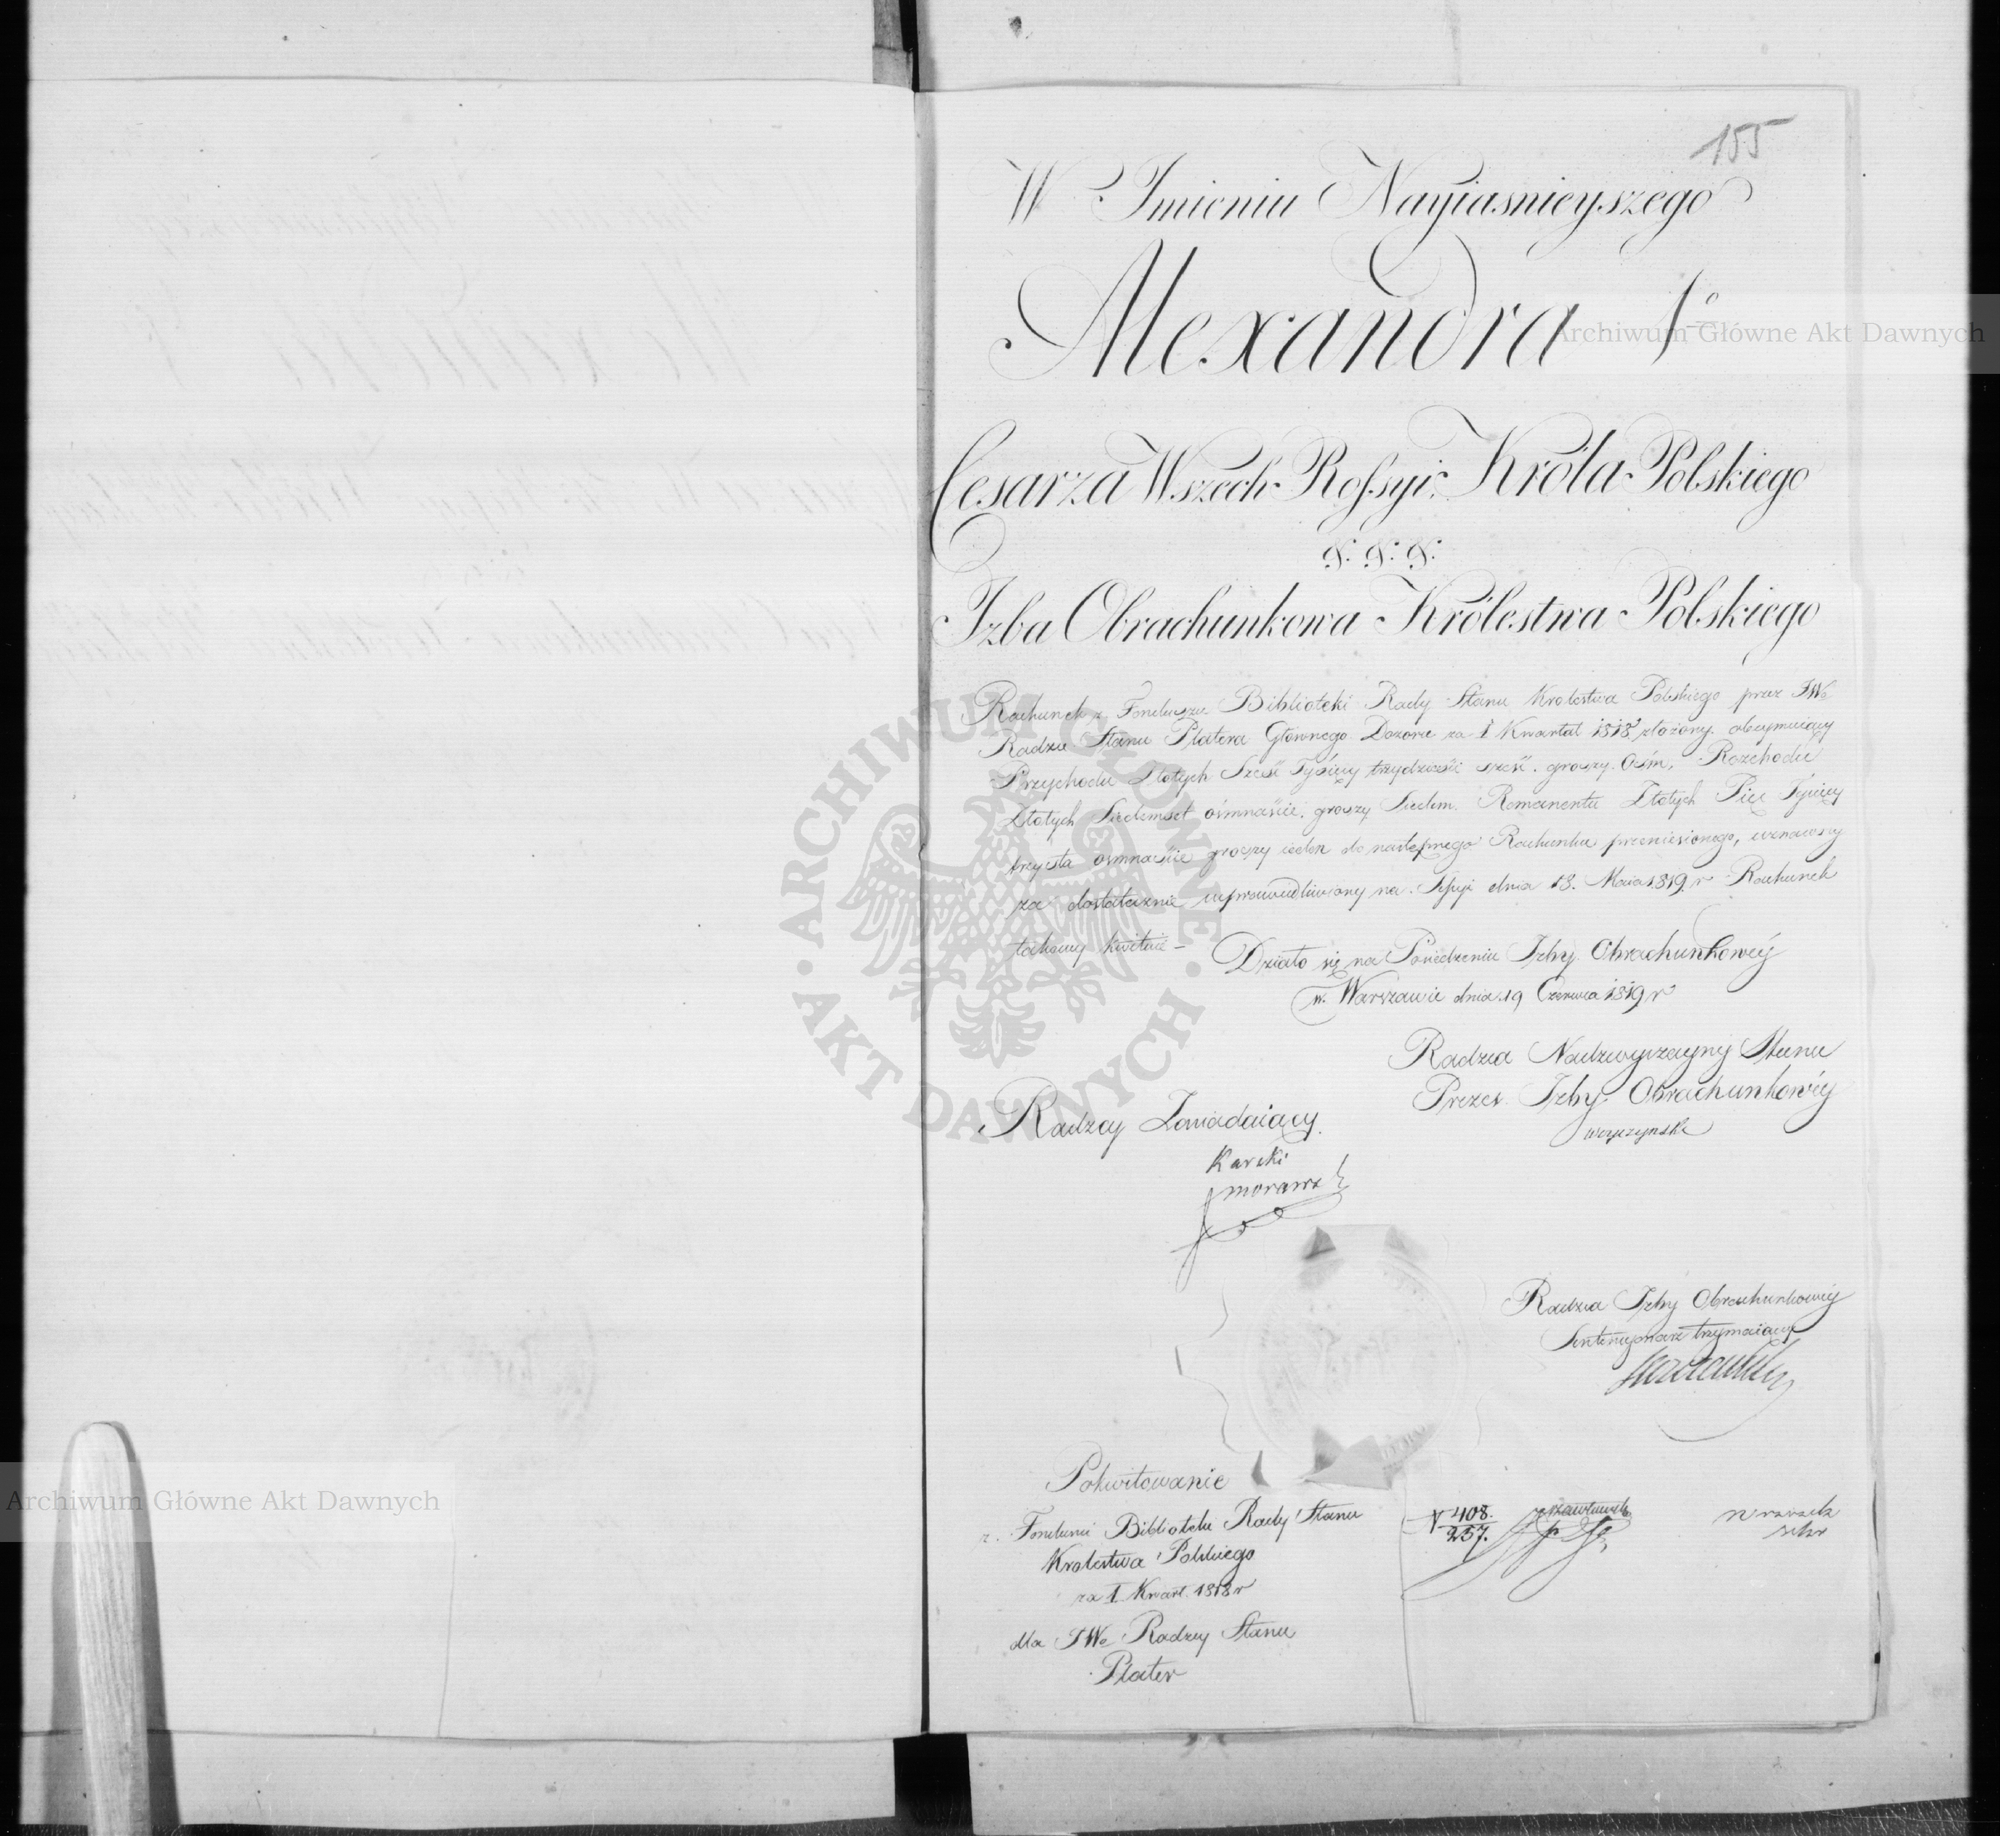 155
W Imieniu Nayiasnieyszego
Alexandra I<sup>o</sup>
Cesarza Wszech Rossyi, Króla Polskiego
&: &: &:
Izba Obrachunkowa Królestwa Polskiego
Rachunek z Funduszu Biblioteki Rady Stanu Krolestwa Polskiego przez JWo
Radzcę Stanu Platera Głównego Dozorcę za I Kwartał 1818 złożony, obeymuiący
Przychodu Złotych Sześć Tysięcy trzydzieści sześć, groszy Ośm, Rozchodu
Złotych Siedmset ośmnaście, groszy Siedm, Remanentu Złotych Pięć Tysięcy
trzysta ośmnaście groszy ieden do następnego Rachunku przeniesionego, uznawszy
za dostatecznie usprawiedliwiony na Sessyi dnia 18. Maia 1819 r Rachunek
takowy kwituie –
Działo się na Posiedzeniu Izby Obrachunkowey
w Warszawie dnia 19 Czerwca 1819 r
Radzca Nadzwyczayny Stanu
Prezes Izby Obrachunkowéy
Radzcy Zasiadaiący
Karski
Radzca Izby Obrachunkowéy
trzymaiący
Pokwitowanie
z Funduszu Biblioteki Rady Stanu
Krolestwa Polskiego
za I Kwart. 1818 r
dla JWo Radzcy Stanu
Plater
N 408.
257.
Archiwum Główne Akt Dawnych
Archiwum Główne Akt Dawnych
ARCHIWUM GŁÓWNE • AKT DAWNYCH •